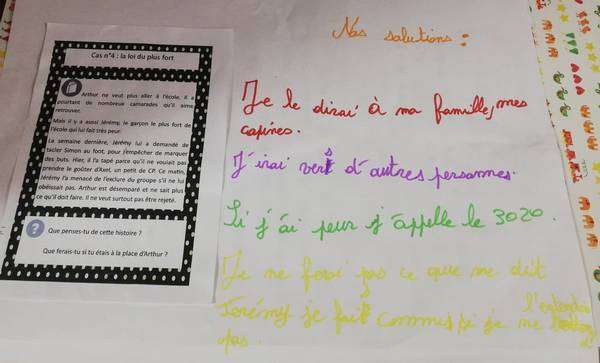 Cas n°4 : la loi du plus fort
Arthur ne veut plus aller à l'école. Il a
pourtant de nombreux camarades qu'il aime
retrouver.
Mais il y a aussi Jérémy, le garçon le plus fort de
l'école qui lui fait très peur.
La semaine dernière, Jérémy lui a demandé de
tacler Simon au foot, pour l'empêcher de marquer
des buts. Hier, il l'a tapé parce qu'il ne voulait pas
prendre le goûter d'Axel, un petit de CP. Ce matin,
Jérémy l'a menacé de l'exclure du groupe s'il ne lui
obéissait pas. Arthur est désemparé et ne sait plus
ce qu'il doit faire. Il ne veut surtout pas être rejeté.
Que penses-tu de cette histoire ?
Que ferais-tu si tu étais à la place d'Arthur ?
Nos solutions :
Je le dirai à ma famille, mes
copines.
J'irai vers d'autres personnes.
Si j'ai peur j'appelle le 3020.
Je ne ferai pas ce que me dit
Jérémy je fait comme si je ne l'entendais
pas.